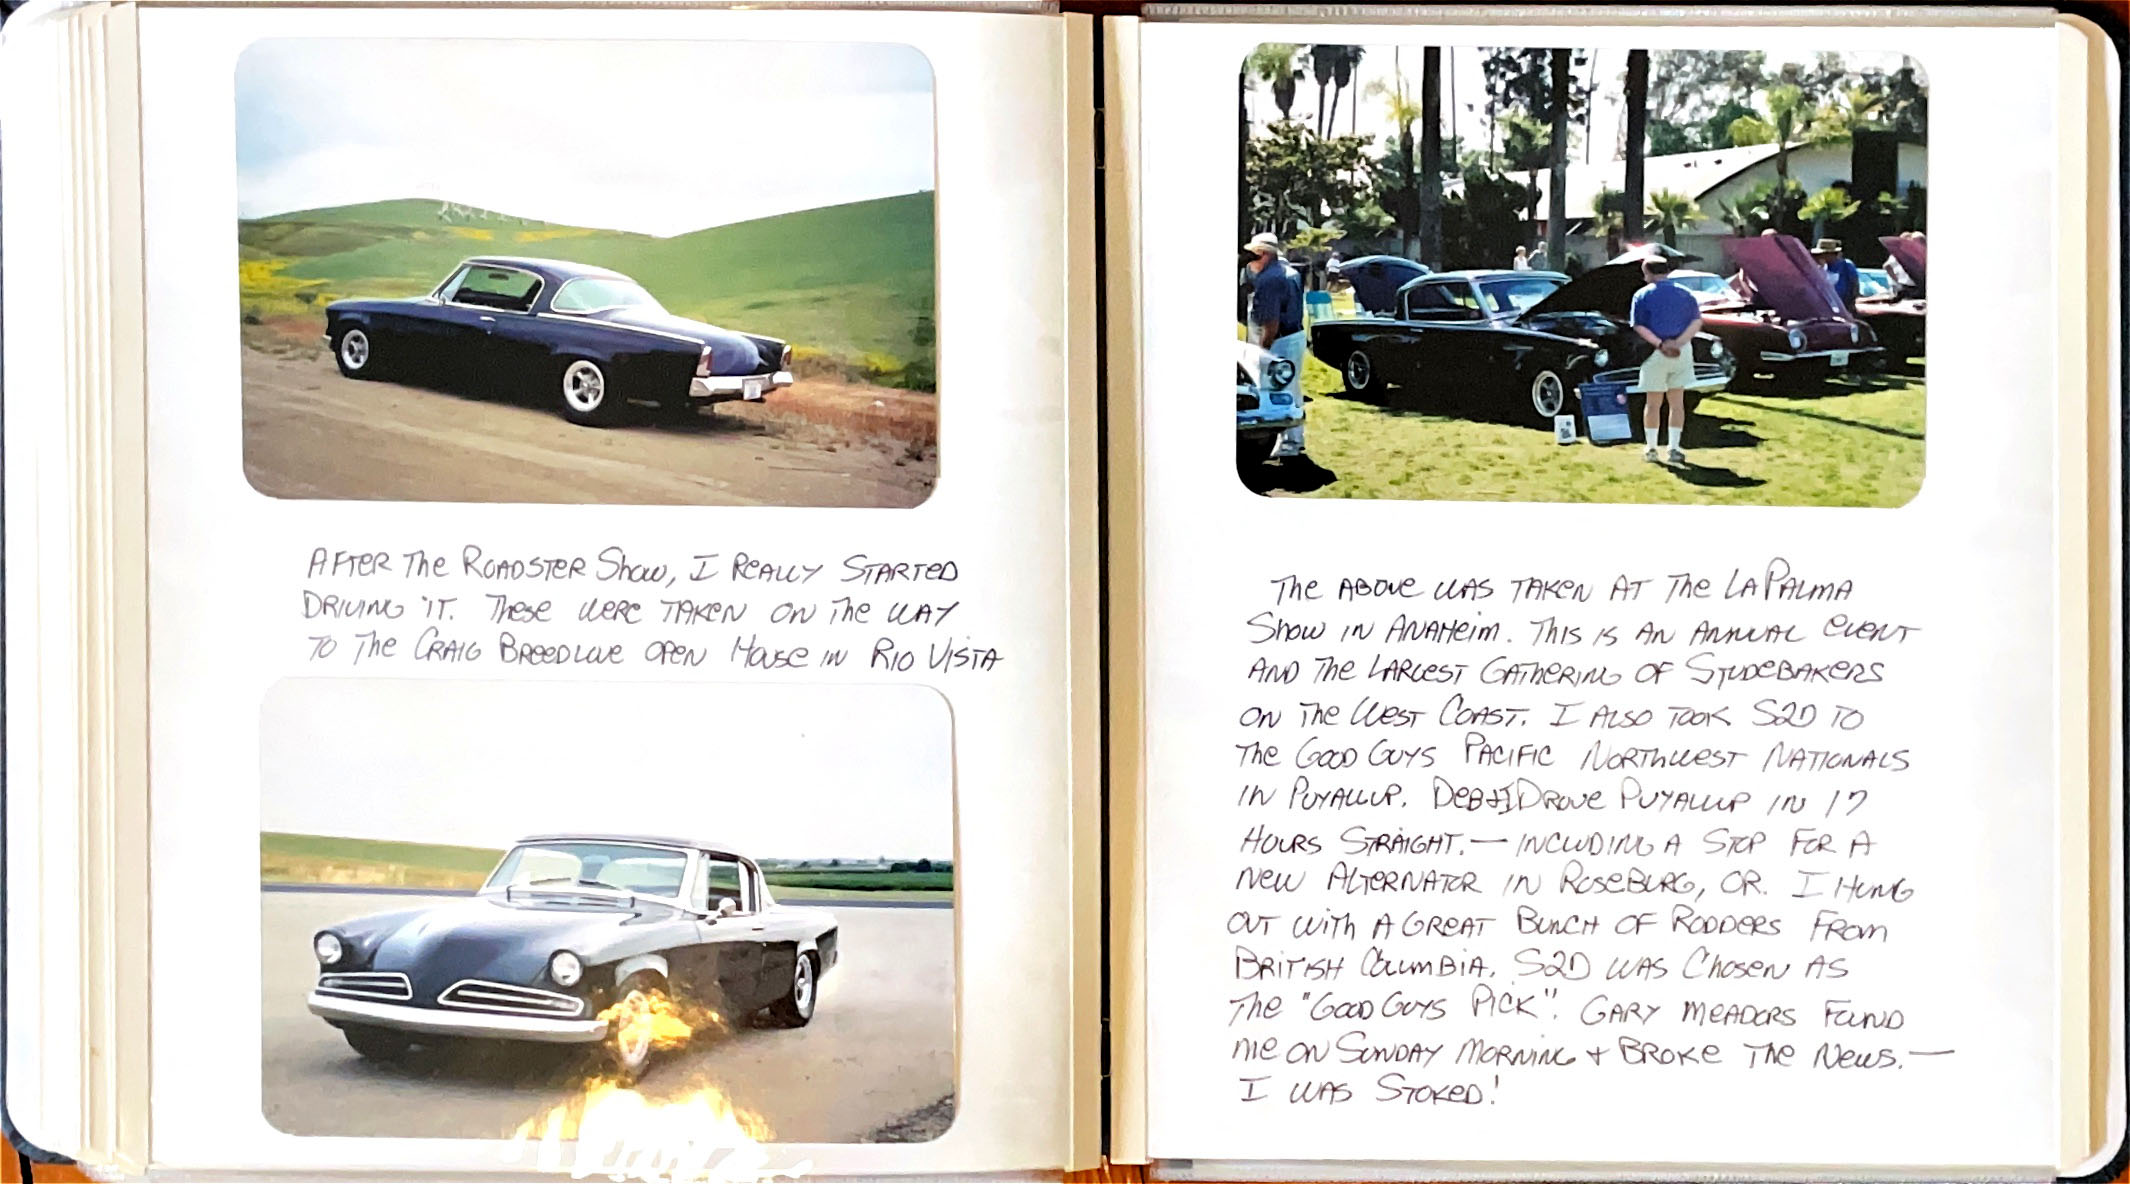 After the Roadster Show, I really started
driving it. These were taken on the way
to the Craig Breedlove open house in Rio Vista
The above was taken at the La Palma
Show in Anaheim. This is an annual event
and the largest gathering of Studebakers
on the West Coast. I also took S2D to
the Good Guys Pacific Northwest Nationals
in Puyallup. Deb + I Drove Puyallup in 17
hours straight. — including a stop for a
new alternator in Roseburg, OR. I hung
out with a great bunch of rodders from
British Columbia. S2D was chosen as
the "Good Guys Pick". Gary Meadors found
me on Sunday morning + broke the news. —
I was stoked!